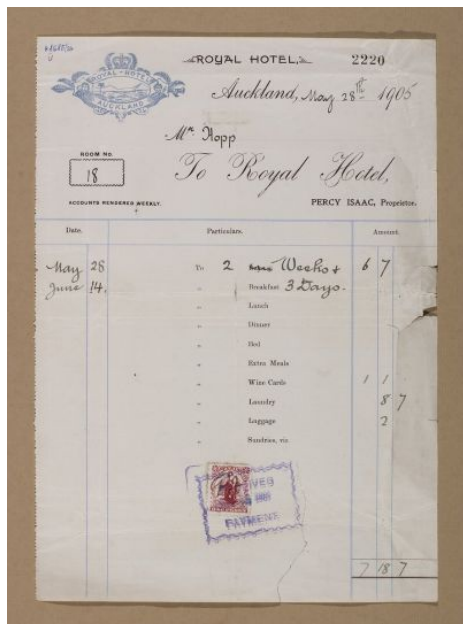 ROYAL HOTEL, 2220
ROYAL HOTEL
AUCKLAND
Auckland, May 28th 1905
Mr Hopp
ROOM No.
18
To Royal Hotel,
ACCOUNTS RENDERED WEEKLY.
PERCY ISAAC, Proprietor.
Date. Particulars. Amount.
May 28 To 2 Weeks & 6 7
June 14. " Breakfast 3 Days.
" Lunch
" Dinner
" Bed
" Extra Meals
" Wine Cards 1 1
" Laundry 8 7
" Luggage 2
" Sundries, viz
PAYMENT
7 18 7